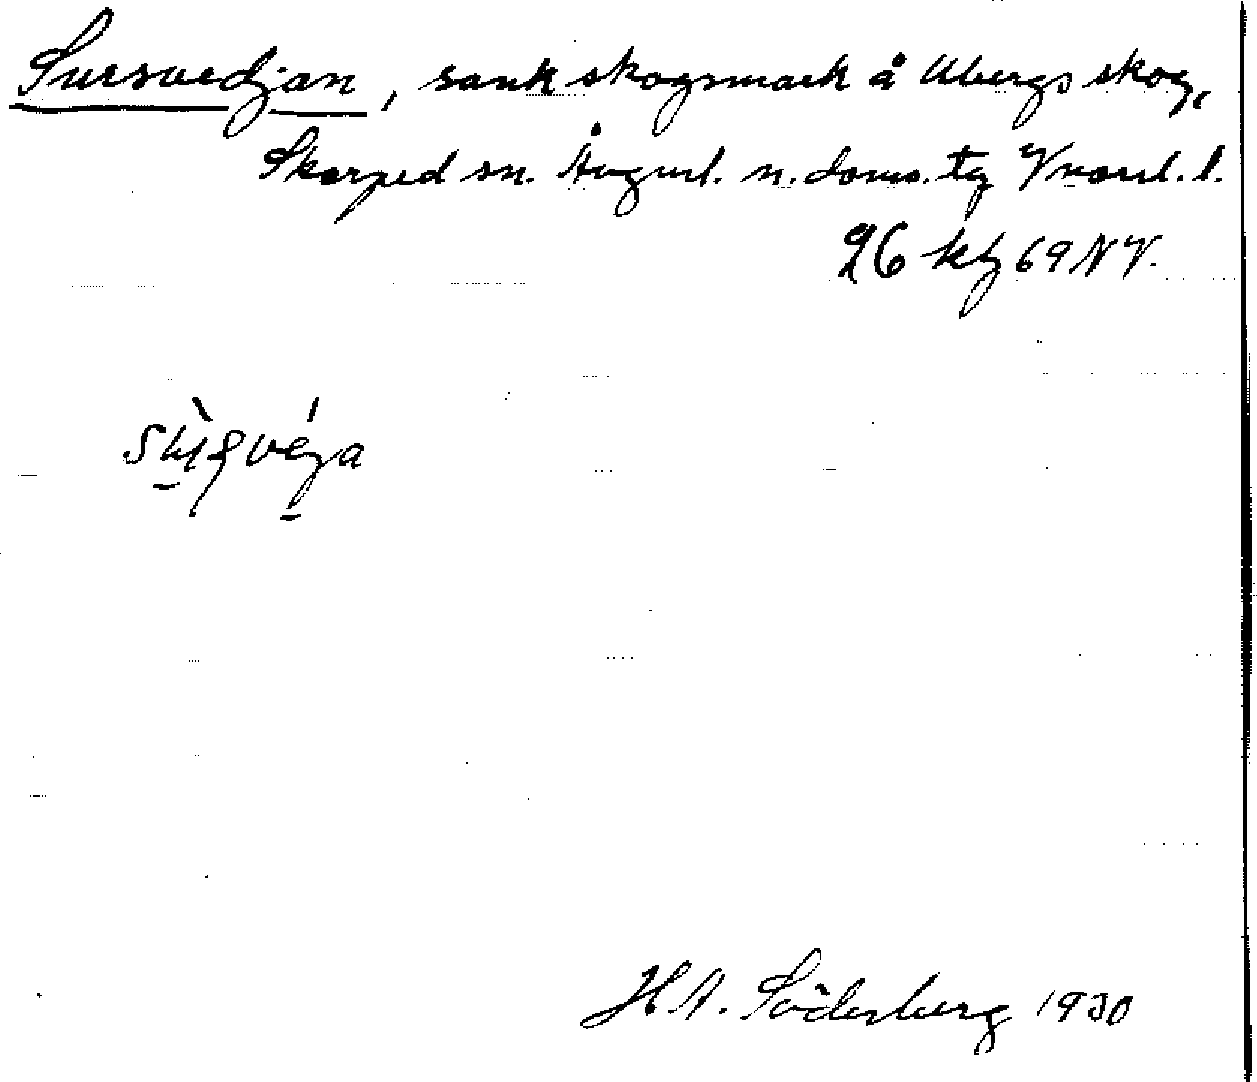 Sursvedjan, sank skogsmark å Ubergs skog,
Skorped sn. Ångml. n. doms. tg Vnorrl. l.
26 kbl 69 NV.
H. A. Söderberg 1930